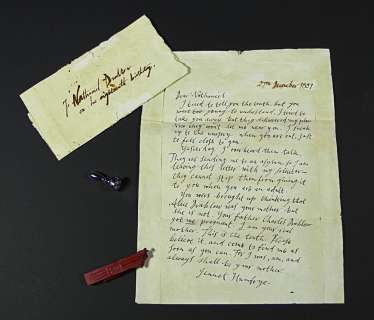 To Nathaniel Drablow
on his eighteenth birthday.
27th December 1859
Dear Nathaniel
I tried to tell you the truth, but you
were too young to understand. I tried to
take you away but they
now they won't let me near you. I sneak
up to the nursery when you are out, just
to feel close to you.
Yesterday I overheard them talk.
They are sending me to an asylum so I am
leaving this letter with my solicitor -
they cannot stop them from giving it
to you when you are an adult.
You were brought up thinking that
Alice Drablow was your mother but
she is not. Your father Charles Drablow
got me pregnant. I am your real
mother. This is the truth. Please
believe it, and come to find me as
soon as you can. For I was, am, and
always shall be your mother.
Jennet Humfrye.